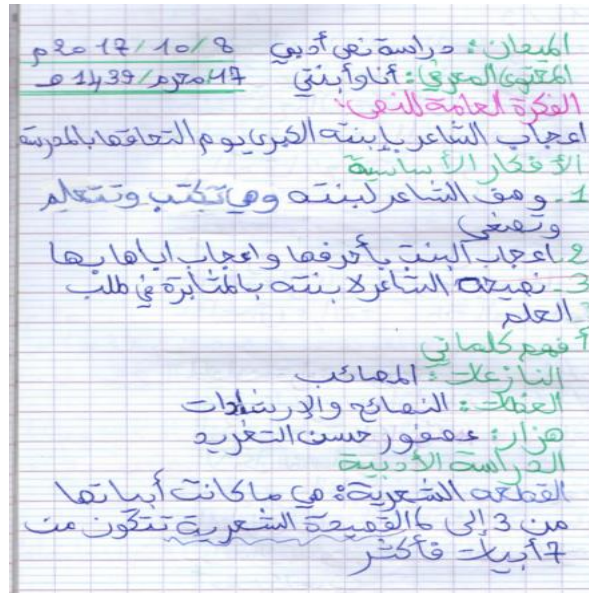 الميدان: دراسة نص أدبي 8/10/2017م
المحتوى المعرفي: أنا وأبنتي 17محرم/1439هـ
الفكرة العامة للنص:
اعجاب الشاعر بإبنته الكبرى يوم التحاقها بالمدرسة
الأفكار الأساسية
1- وصف الشاعر لبنته وهي تكتب وتتعلم
وتصغي
2- اعجاب البنت بأحرفها واعجاب اباها بها
3- نصيحه الشاعر لابنته بالمثابرة في طلب
العلم
أفهم كلماتي
النازعات: المصائب
العظات: النصائح والإرشادات
هزار: عصفور حسن التغريد
الدراسة الأدبية
القطعه الشعرية: هي ماكانت أبياتها
من 3 إلى 6 القصيدة الشعرية تتكون من
7 أبيات فأكثر